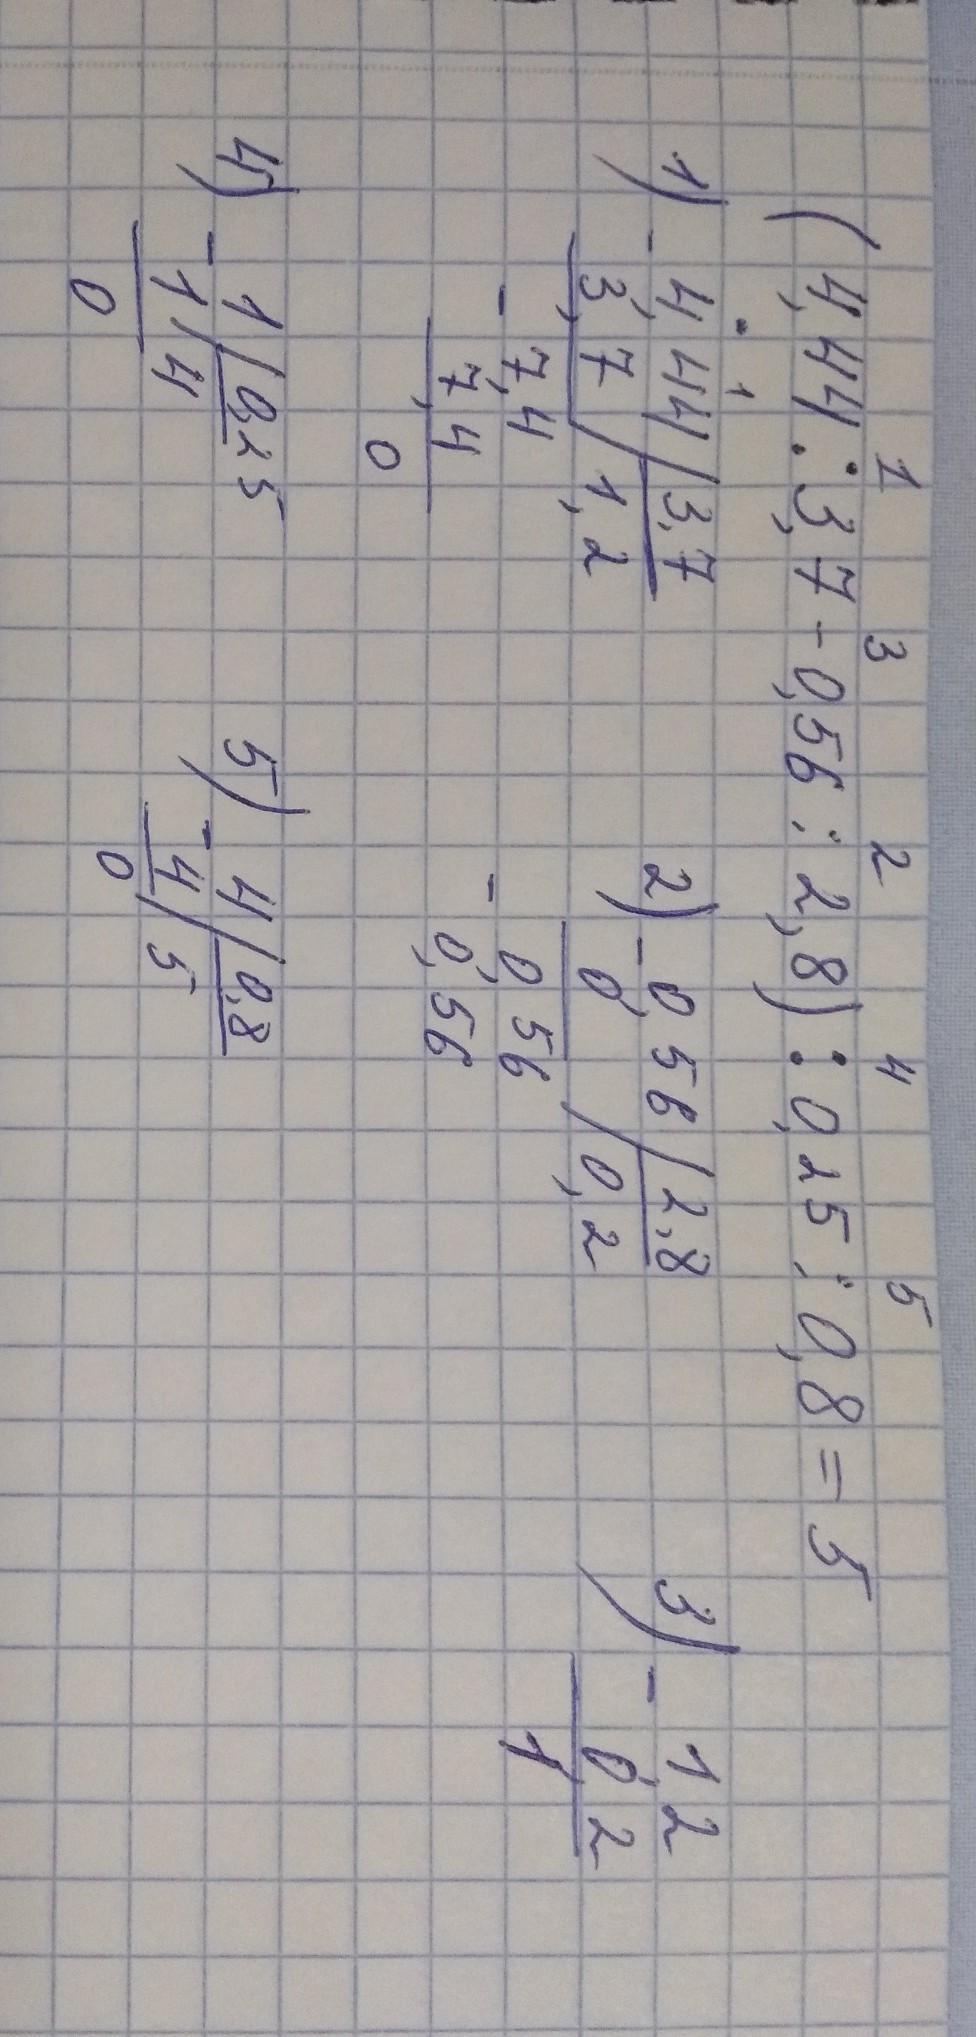 1 3 2 4 5
(4,44 : 3,7 - 0,56 : 2,8) : 0,25 : 0,8 = 5
1) - 4,44 | 3,7
3,7 | 1,2
- 7,4
7,4
0
2) - 0,56 | 2,8
0 | 0,2
- 0,56
0,56
3) - 1,2
0,2
1
4) - 1 | 0,25
1 | 4
0
5) - 4 | 0,8
4 | 5
0